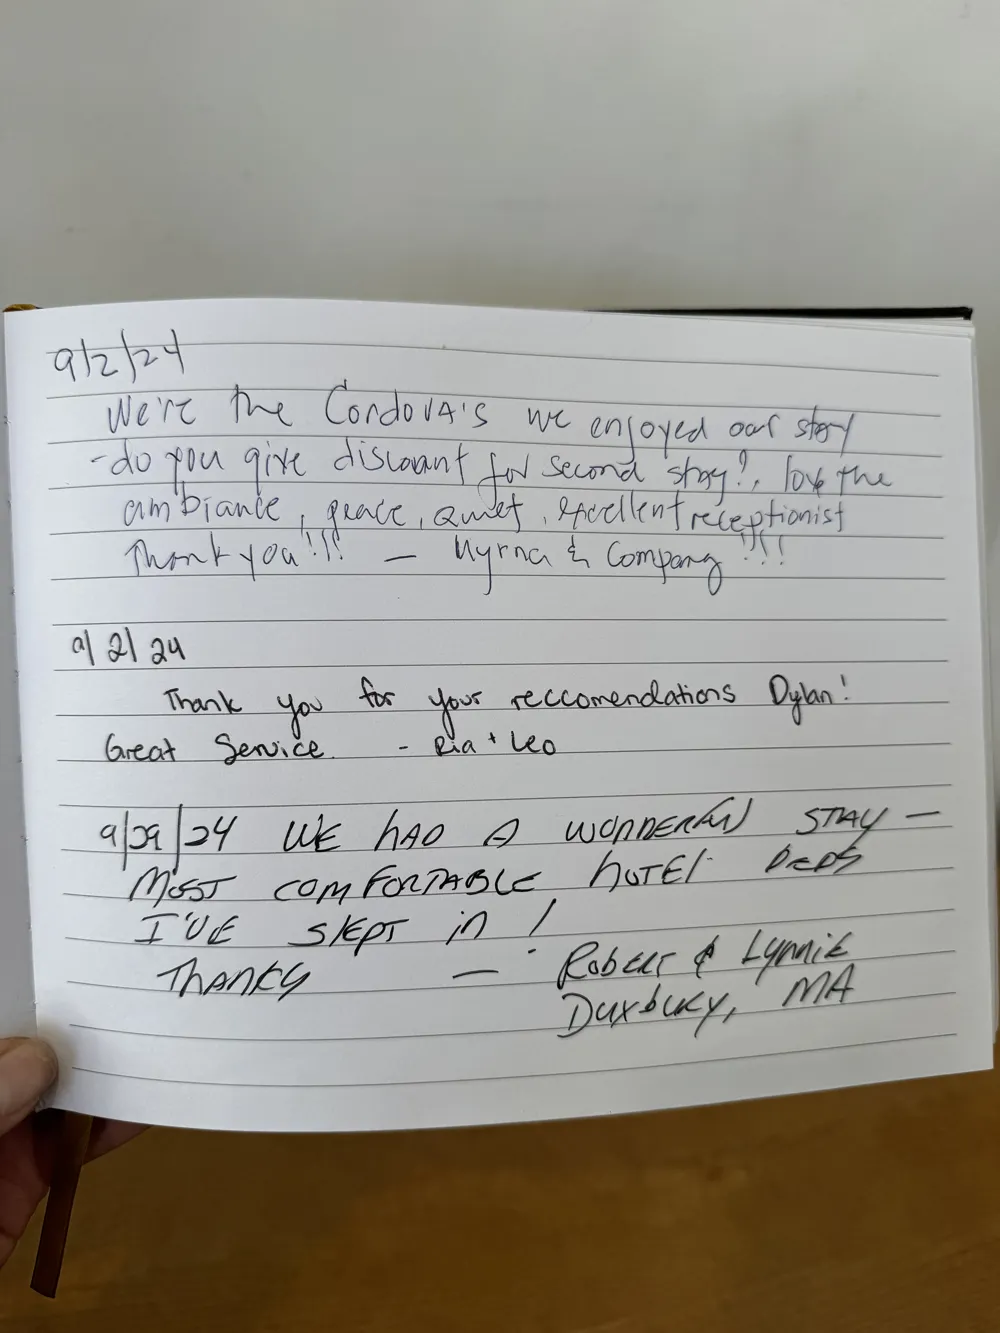 9/2/24
We're the Cordova's we enjoyed our stay
- do you give discount for second stay?, love the
ambiance, peace, quiet, excellent receptionist
Thank you!!! — Myrna & Company!!!
9/2/24
Thank you for your reccomendations Dylan!
Great Service. - Ria + Leo
9/29/24 WE HAD A WONDERFUL STAY —
MOST COMFORTABLE HOTEL BEDS
I'VE SLEPT IN!
THANKS — ROBERT & LYNNIE
DUXBURY, MA